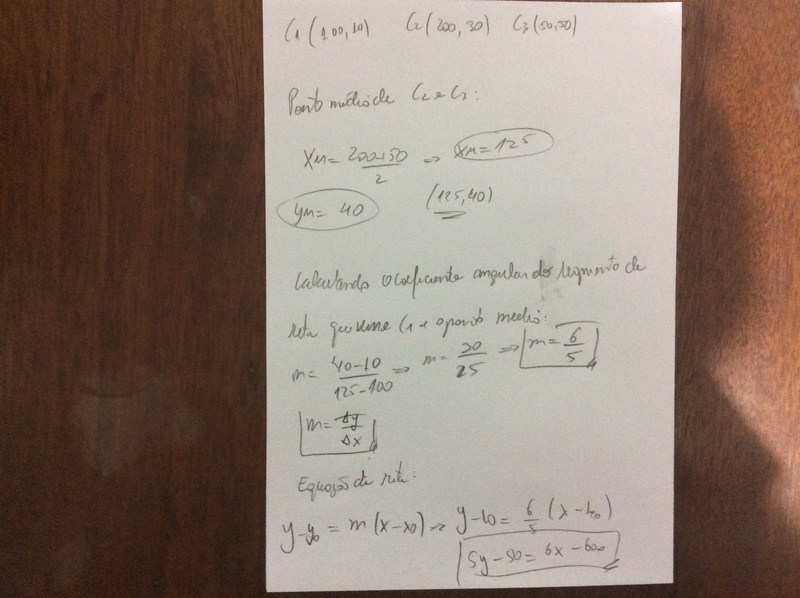 C1 (100,10) C2 (200,30) C3 (50,50)
Ponto médio de C2 e C3:
XM = 200+50/2 ⇒ XM = 125
yM = 40 (125,40)
Calculando o coeficiente angular do segmento de
reta que une C1 e o ponto médio:
m = 40-10/125-100 ⇒ m = 30/25 ⇒ m = 6/5
m = Δy/Δx
Equação da reta:
y-y0 = m (x-x0) → y-10 = 6/5 (x-100)
5y-50 = 6x-600